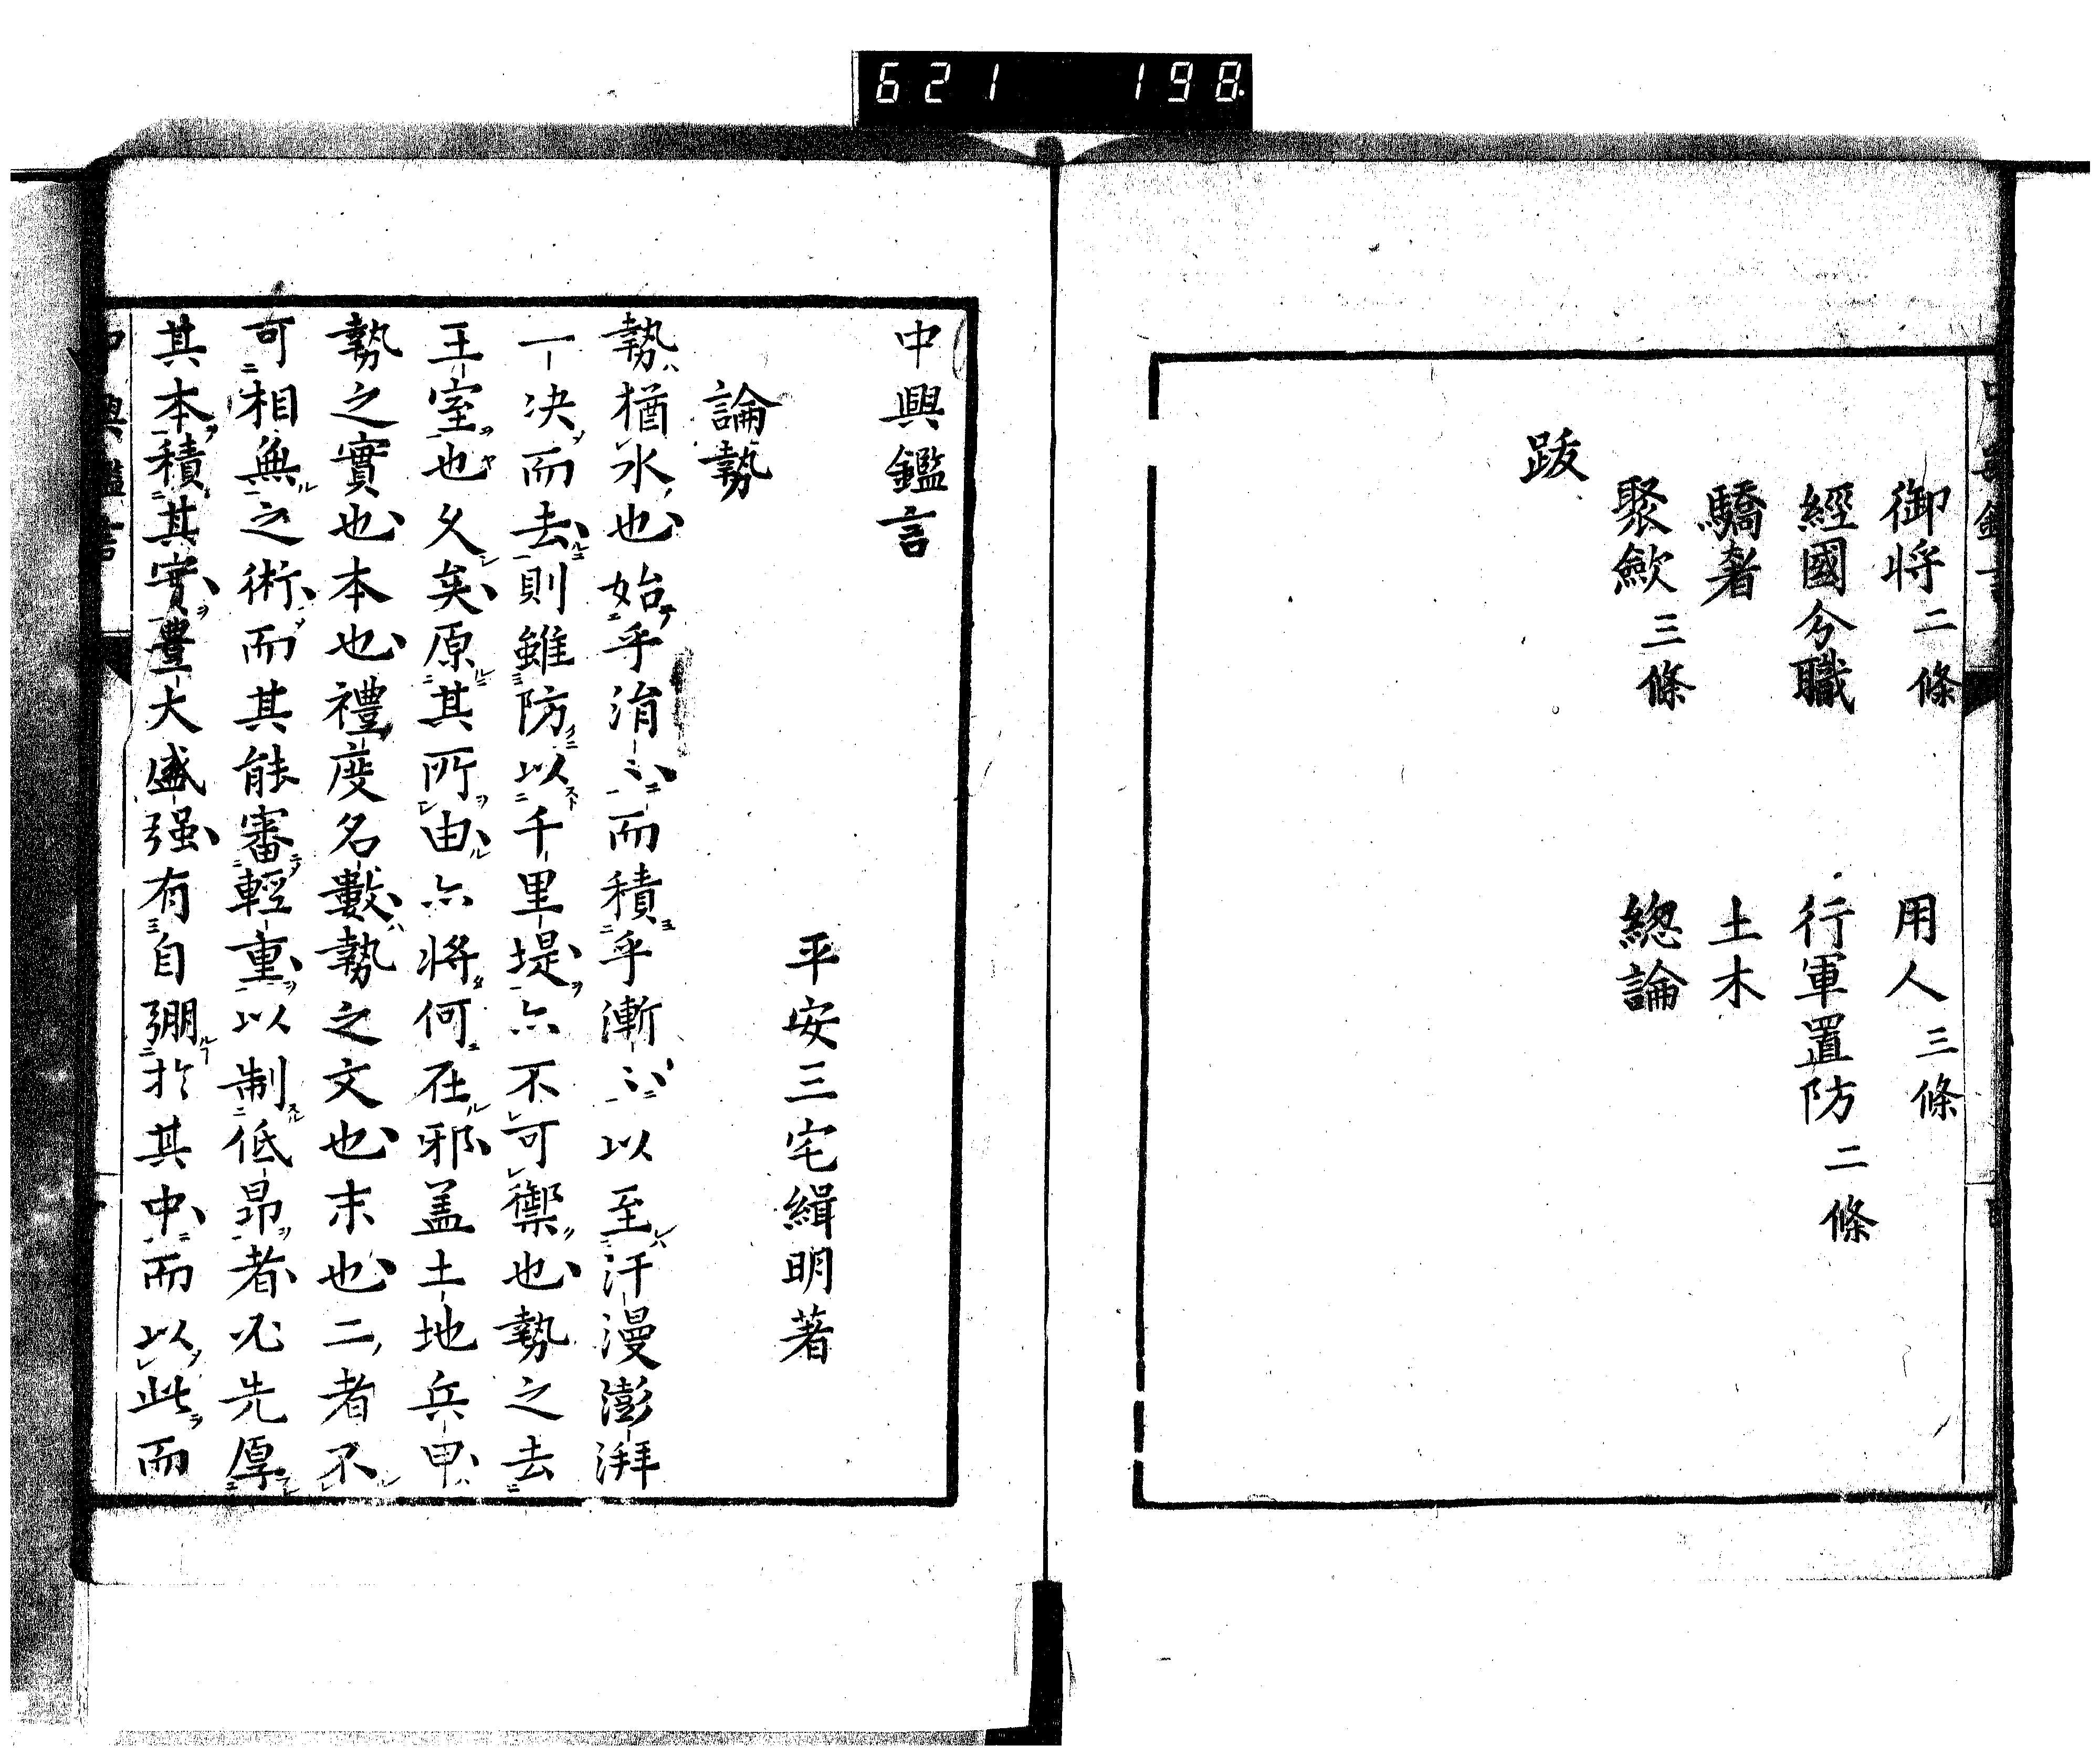 621 198
御将二條　用人三條
經國分職　行軍置防二條
驕奢　土木
聚歛三條　總論
跋
中興鑑言
平安三宅緝明著
論勢
勢猶水也始乎涓〻而積乎漸〻以至汗漫澎湃
一决而去則雖防以千里堤亦不可禦也勢之去
王室也久矣原其所由亦将何在邪盖土地兵甲
勢之實也本也禮度名數勢之文也末也二者不
可相無之術而其能審輕重以制低昻者必先厚
其本積其實豊大盛强有自弸於其中而以此而
中興鑑言